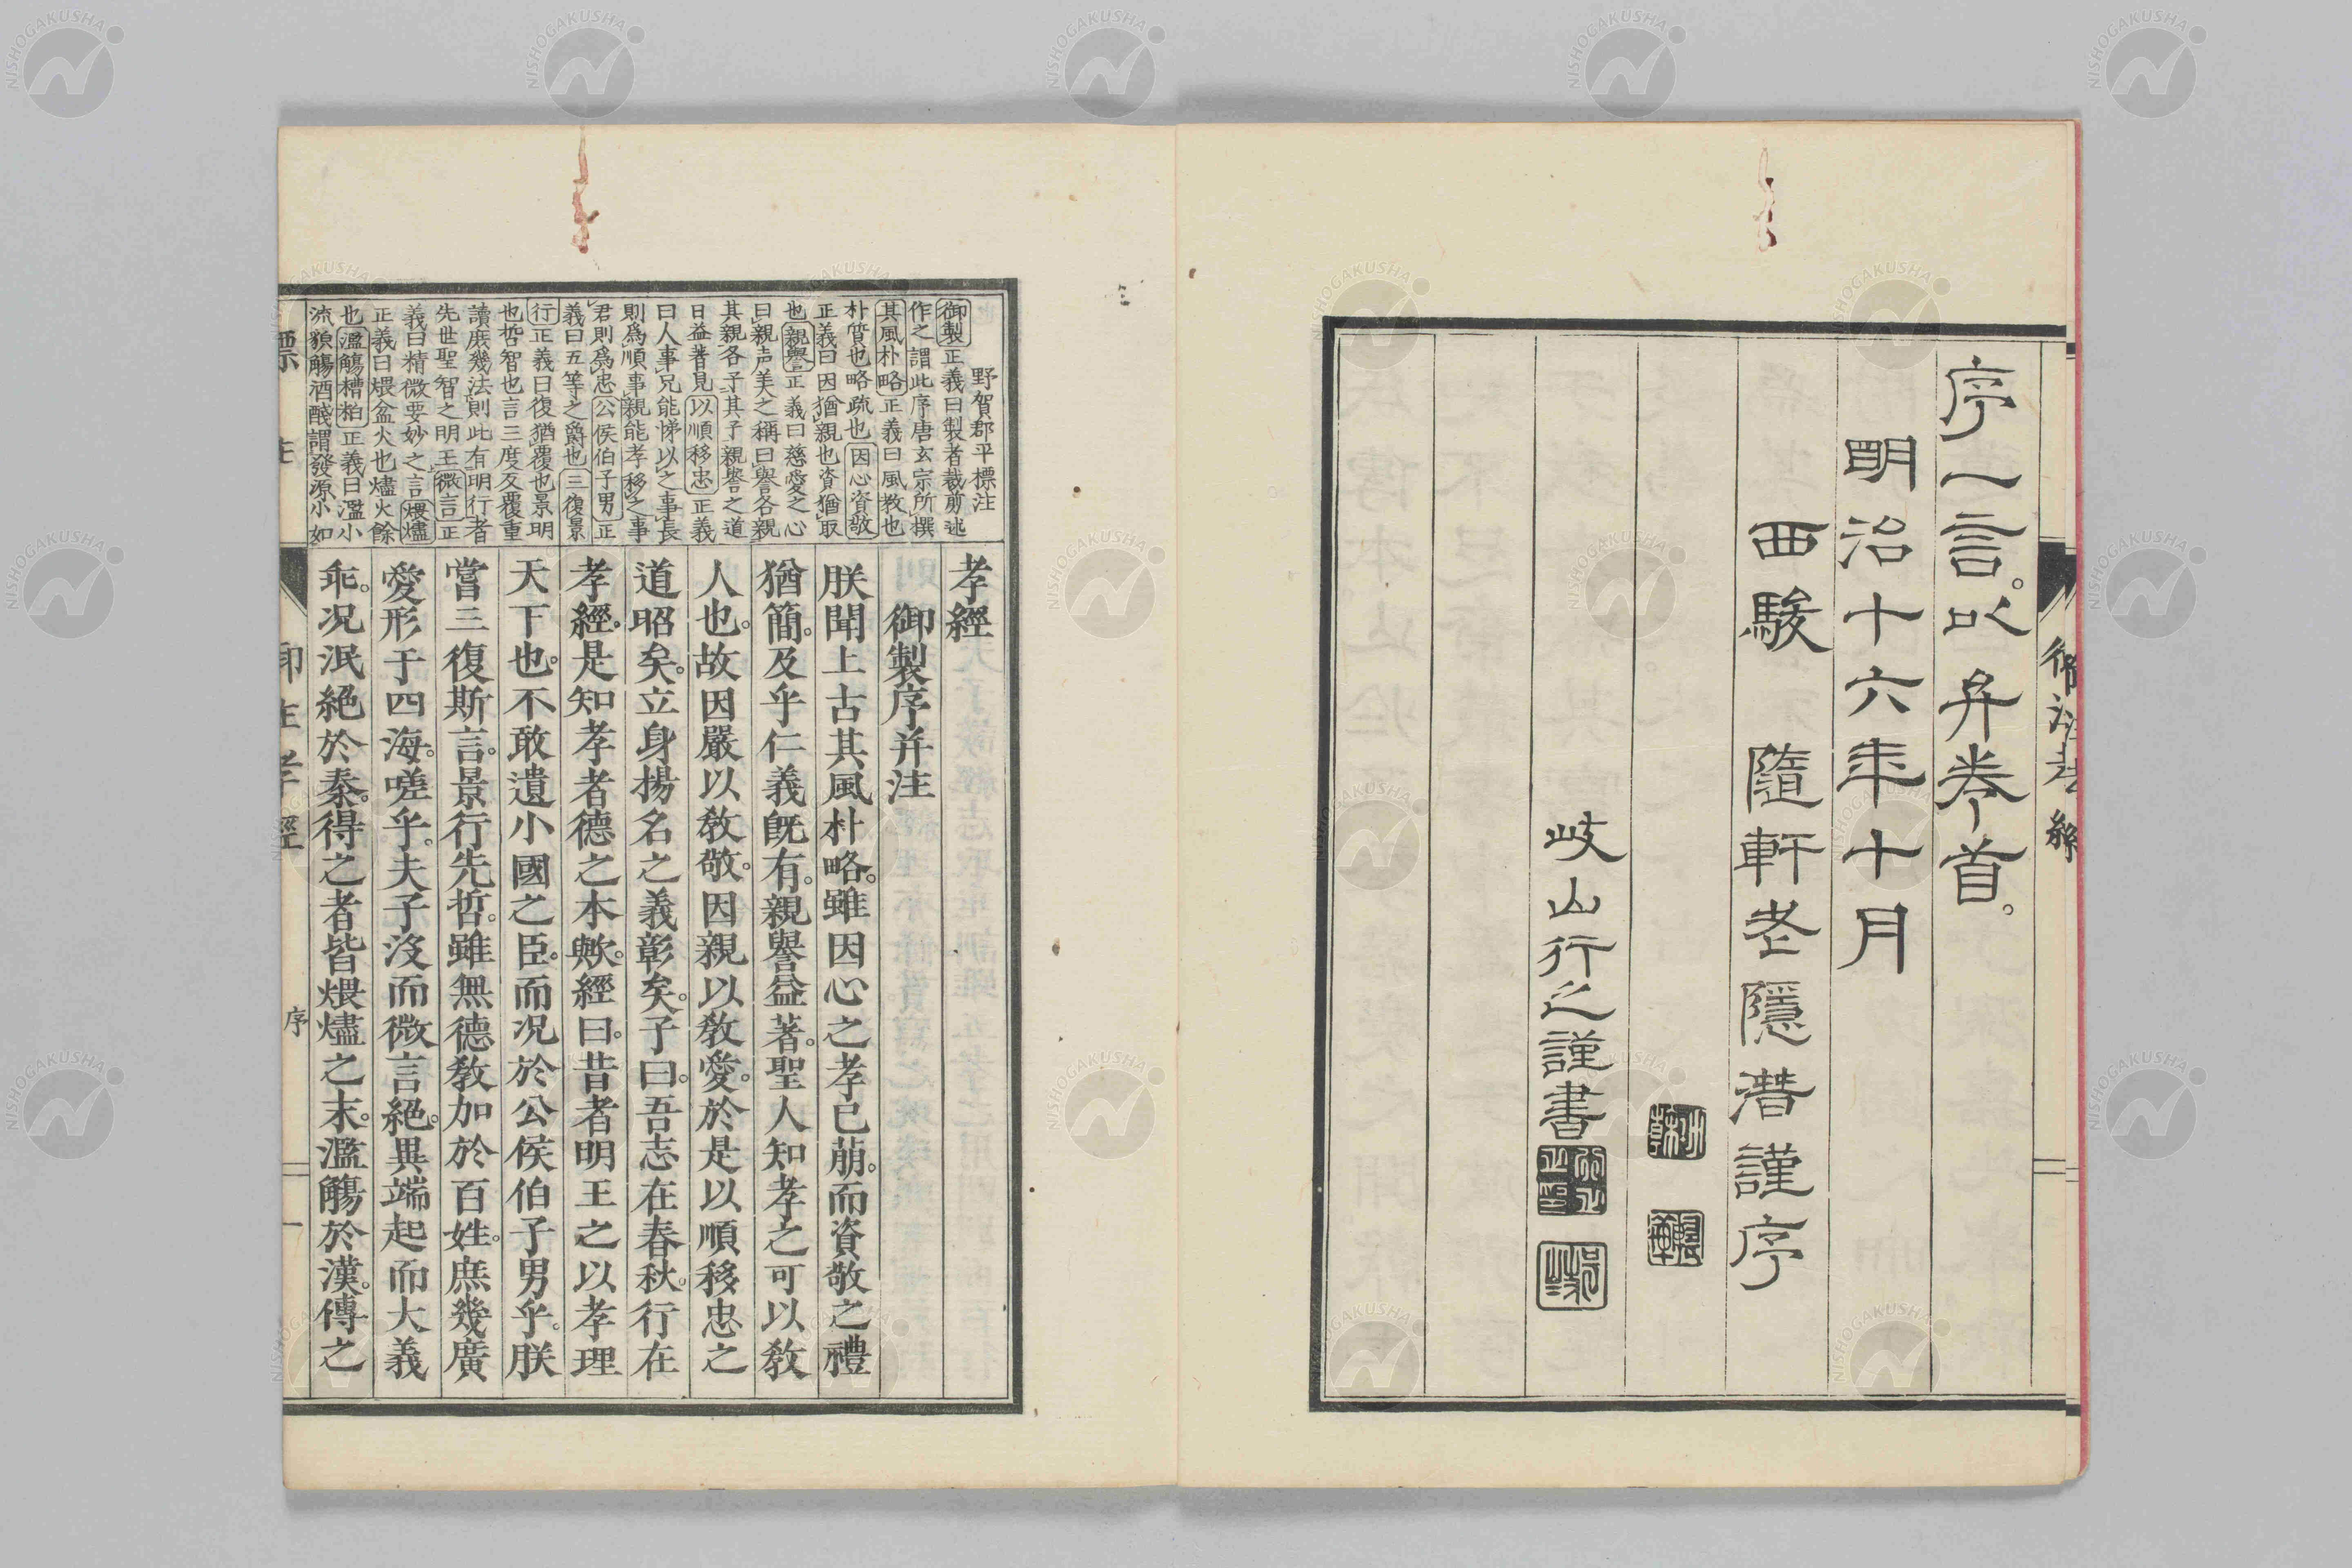 序一言。以弁卷首。
明治十六年十月
西駿 隨軒老隱潛謹序
岐山行之謹書
野賀郡平標注
御製正義曰製者裁剪述
作之謂此序唐玄宗所撰
其風朴略正義曰風教也
朴質也略疏也因心資敬
正義曰因猶親也資猶取
也親譽正義曰慈愛之心
曰親声美之稱曰譽各親
其親各子其子親譽之道
日益著見以順移忠正義
曰人事兄能悌以之事長
則爲順事親能孝移之事
君則爲忠公侯伯子男正
義曰五等之爵也三復景
行正義曰復猶覆也景明
也哲智也言三度反覆重
讀庶幾法則此有明行者
先世聖智之明王微言正
義曰精微要妙之言煨燼
正義曰煨盆火也燼火餘
也濫觴糟粕正義曰濫小
流貌觴酒醆謂發源小如
孝經
御製序并注
朕聞上古其風朴略。雖因心之孝已萠。而資敬之禮
猶簡。及乎仁義旣有。親譽益著。聖人知孝之可以敎
人也。故因嚴以敎敬。因親以敎愛。於是以順移忠之
道昭矣。立身揚名之義彰矣。子曰。吾志在春秋。行在
孝經。是知孝者德之本歟。經曰。昔者明王之以孝理
天下也。不敢遺小國之臣。而况於公侯伯子男乎。朕
嘗三復斯言。景行先哲。雖無德敎加於百姓。庶幾廣
愛形于四海。嗟乎。夫子沒而微言絕。異端起而大義
乖。况泯絕於秦。得之者皆煨燼之末。濫觴於漢。傳之
序
一